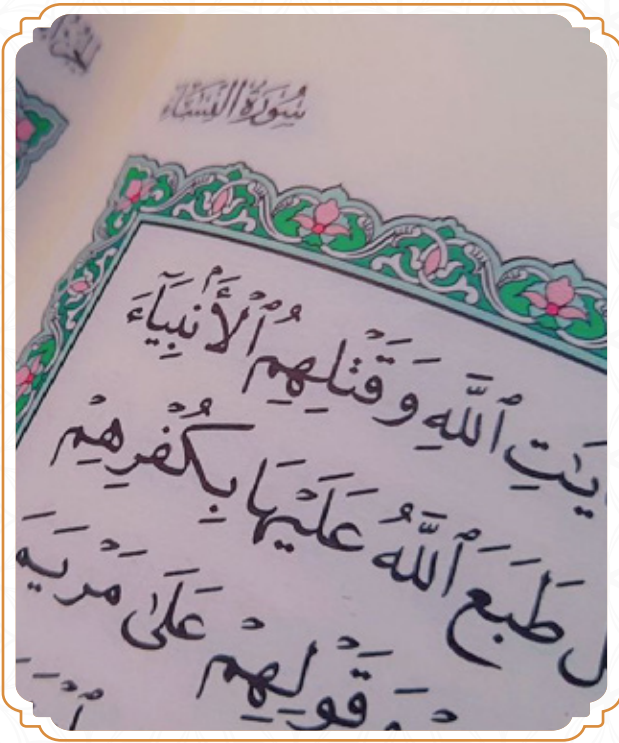 سُورَةُ النِّسَاءِ
يَٰتِ ٱللَّهِ وَقَتْلِهِمُ ٱلْأَنۢبِيَآءَ
طَبَعَ ٱللَّهُ عَلَيْهَا بِكُفْرِهِمْ
قَوْلِهِمْ عَلَىٰ مَرْيَمَ